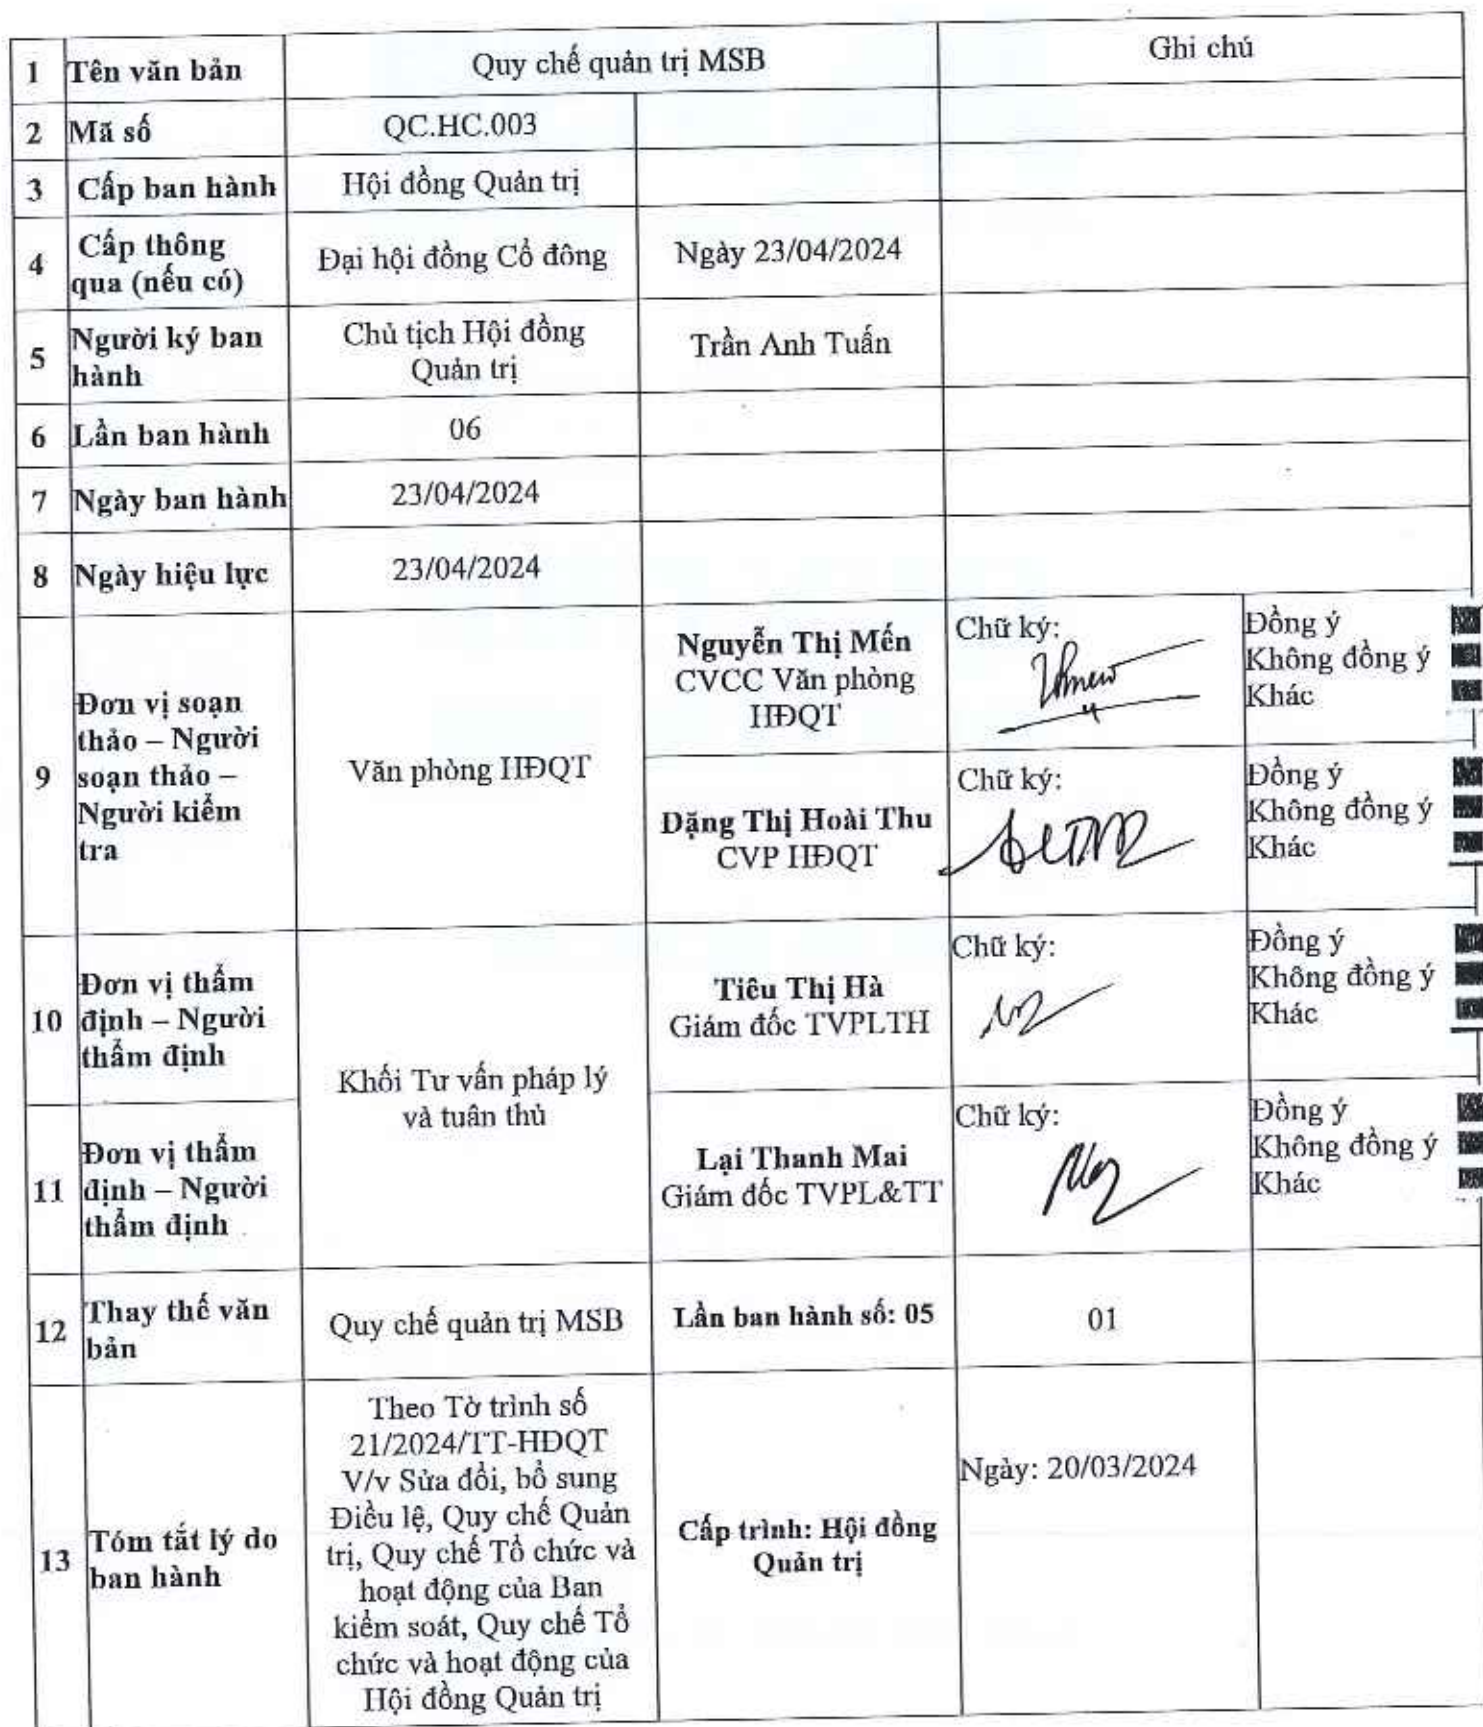 1 Tên văn bản Quy chế quản trị MSB Ghi chú
2 Mã số QC.HC.003
3 Cấp ban hành Hội đồng Quản trị
4 Cấp thông
qua (nếu có) Đại hội đồng Cổ đông Ngày 23/04/2024
5 Người ký ban
hành Chủ tịch Hội đồng
Quản trị Trần Anh Tuấn
6 Lần ban hành 06
7 Ngày ban hành 23/04/2024
8 Ngày hiệu lực 23/04/2024
9 Đơn vị soạn
thảo – Người
soạn thảo –
Người kiểm
tra
Văn phòng HĐQT
Nguyễn Thị Mến
CVCC Văn phòng
HĐQT
Chữ ký:
Đồng ý
Không đồng ý
Khác
Đặng Thị Hoài Thu
CVP HĐQT
Chữ ký:
Đồng ý
Không đồng ý
Khác
10 Đơn vị thẩm
định – Người
thẩm định
Khối Tư vấn pháp lý
và tuân thủ
Tiêu Thị Hà
Giám đốc TVPLTH
Chữ ký:
Đồng ý
Không đồng ý
Khác
11 Đơn vị thẩm
định – Người
thẩm định
Lại Thanh Mai
Giám đốc TVPL&TT
Chữ ký:
Đồng ý
Không đồng ý
Khác
12 Thay thế văn
bản
Quy chế quản trị MSB
Lần ban hành số: 05
01
13 Tóm tắt lý do
ban hành
Theo Tờ trình số
21/2024/TT-HĐQT
V/v Sửa đổi, bổ sung
Điều lệ, Quy chế Quản
trị, Quy chế Tổ chức và
hoạt động của Ban
kiểm soát, Quy chế Tổ
chức và hoạt động của
Hội đồng Quản trị
Cấp trình: Hội đồng
Quản trị
Ngày: 20/03/2024